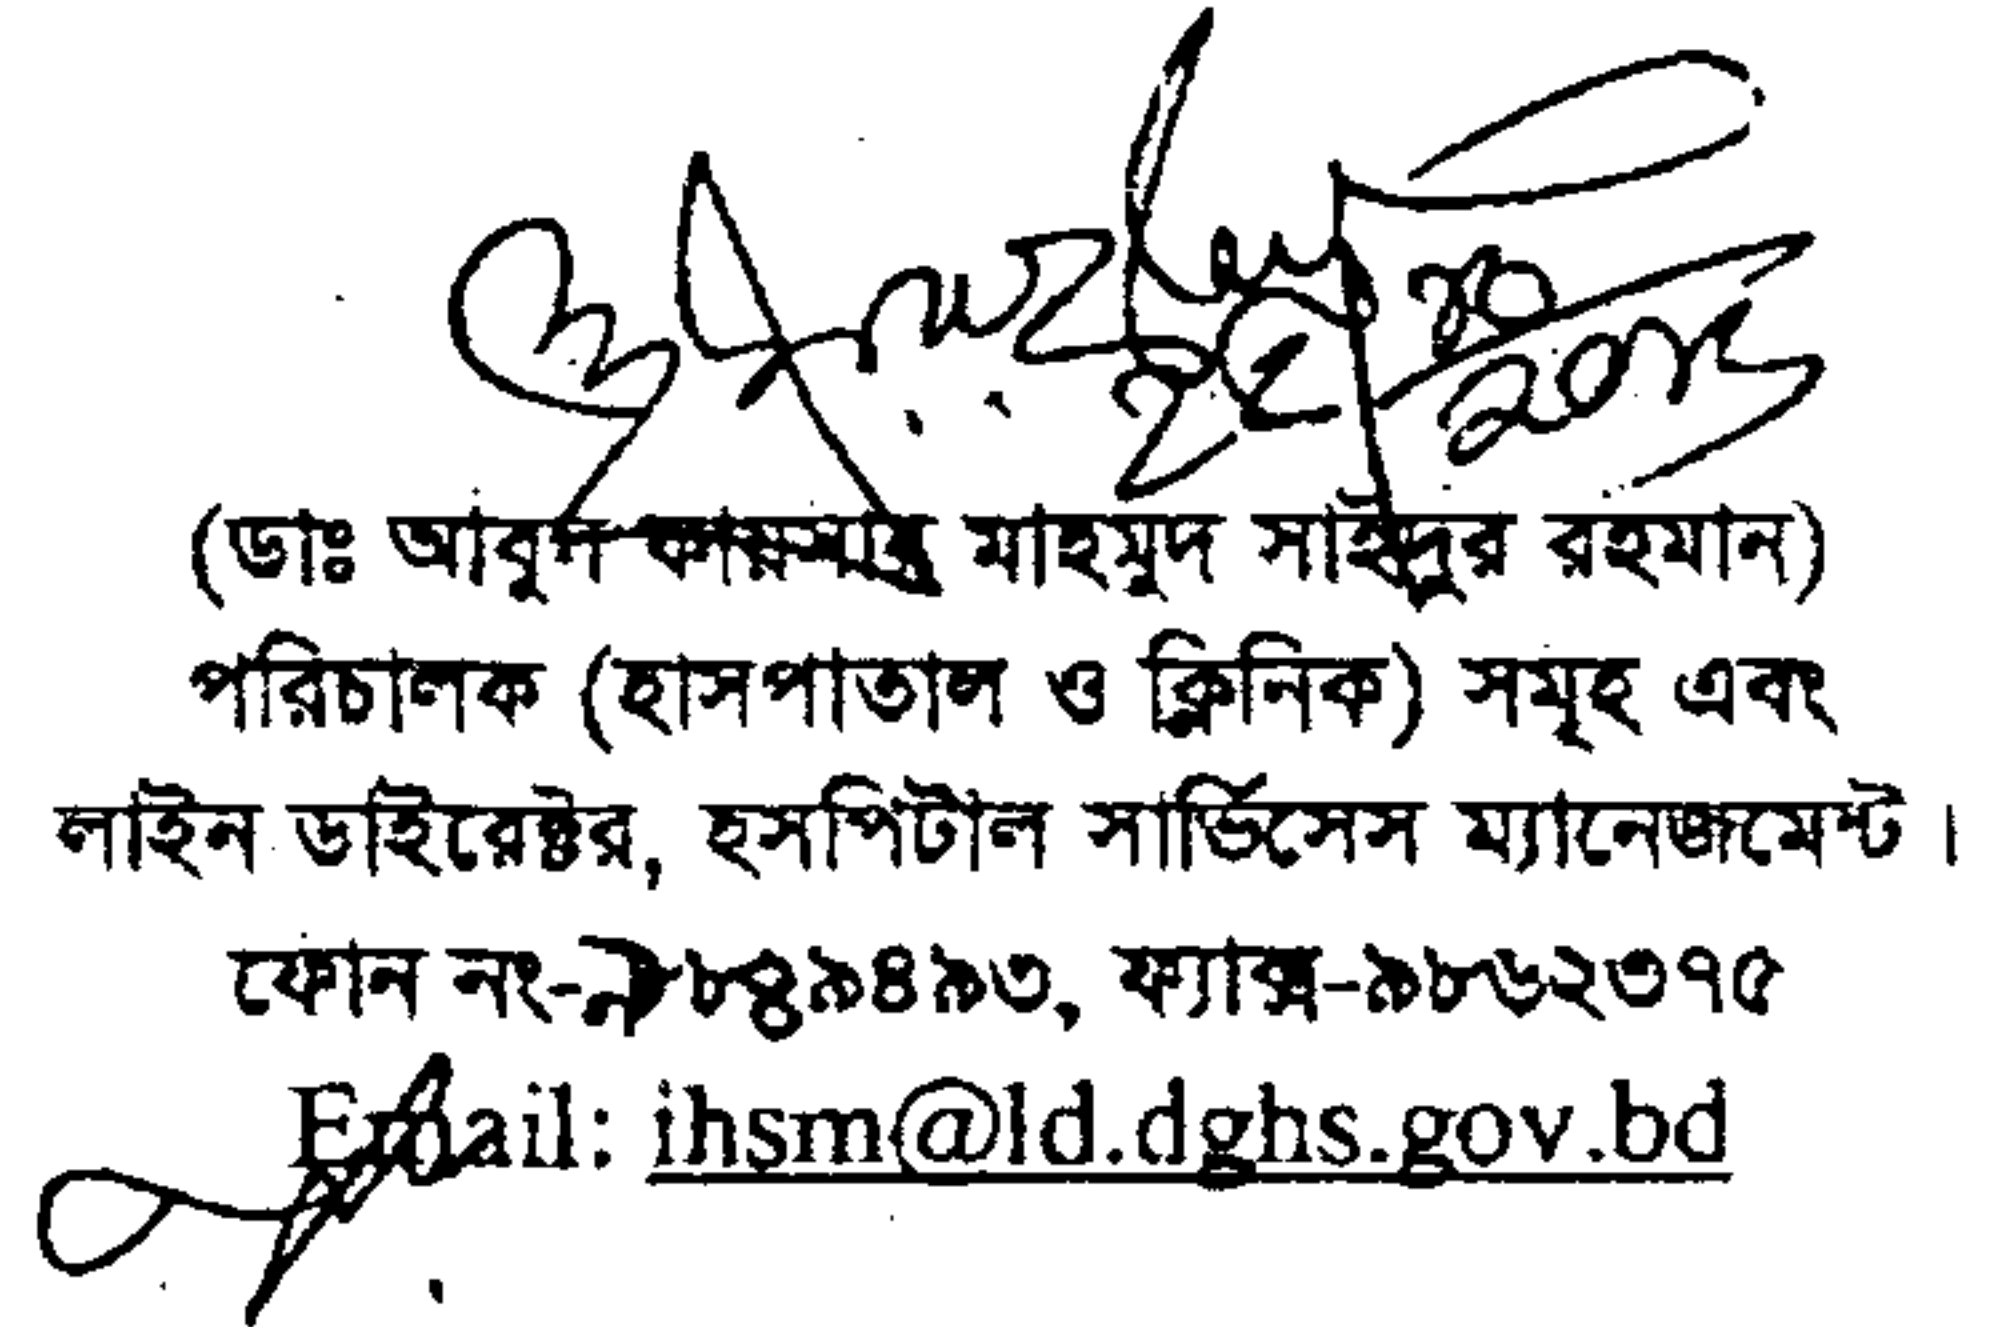 (ডাঃ আবুল মাহমুদ সাইদুর রহমান)
পরিচালক (হাসপাতাল ও ক্লিনিক) সমূহ এবং
লাইন ডাইরেক্টর, হসপিটাল সার্ভিসেস ম্যানেজমেন্ট।
ফোন নং- ফ্যাক্স-৯৮৬২৩৭৫
Email: ihsm@ld.dghs.gov.bd